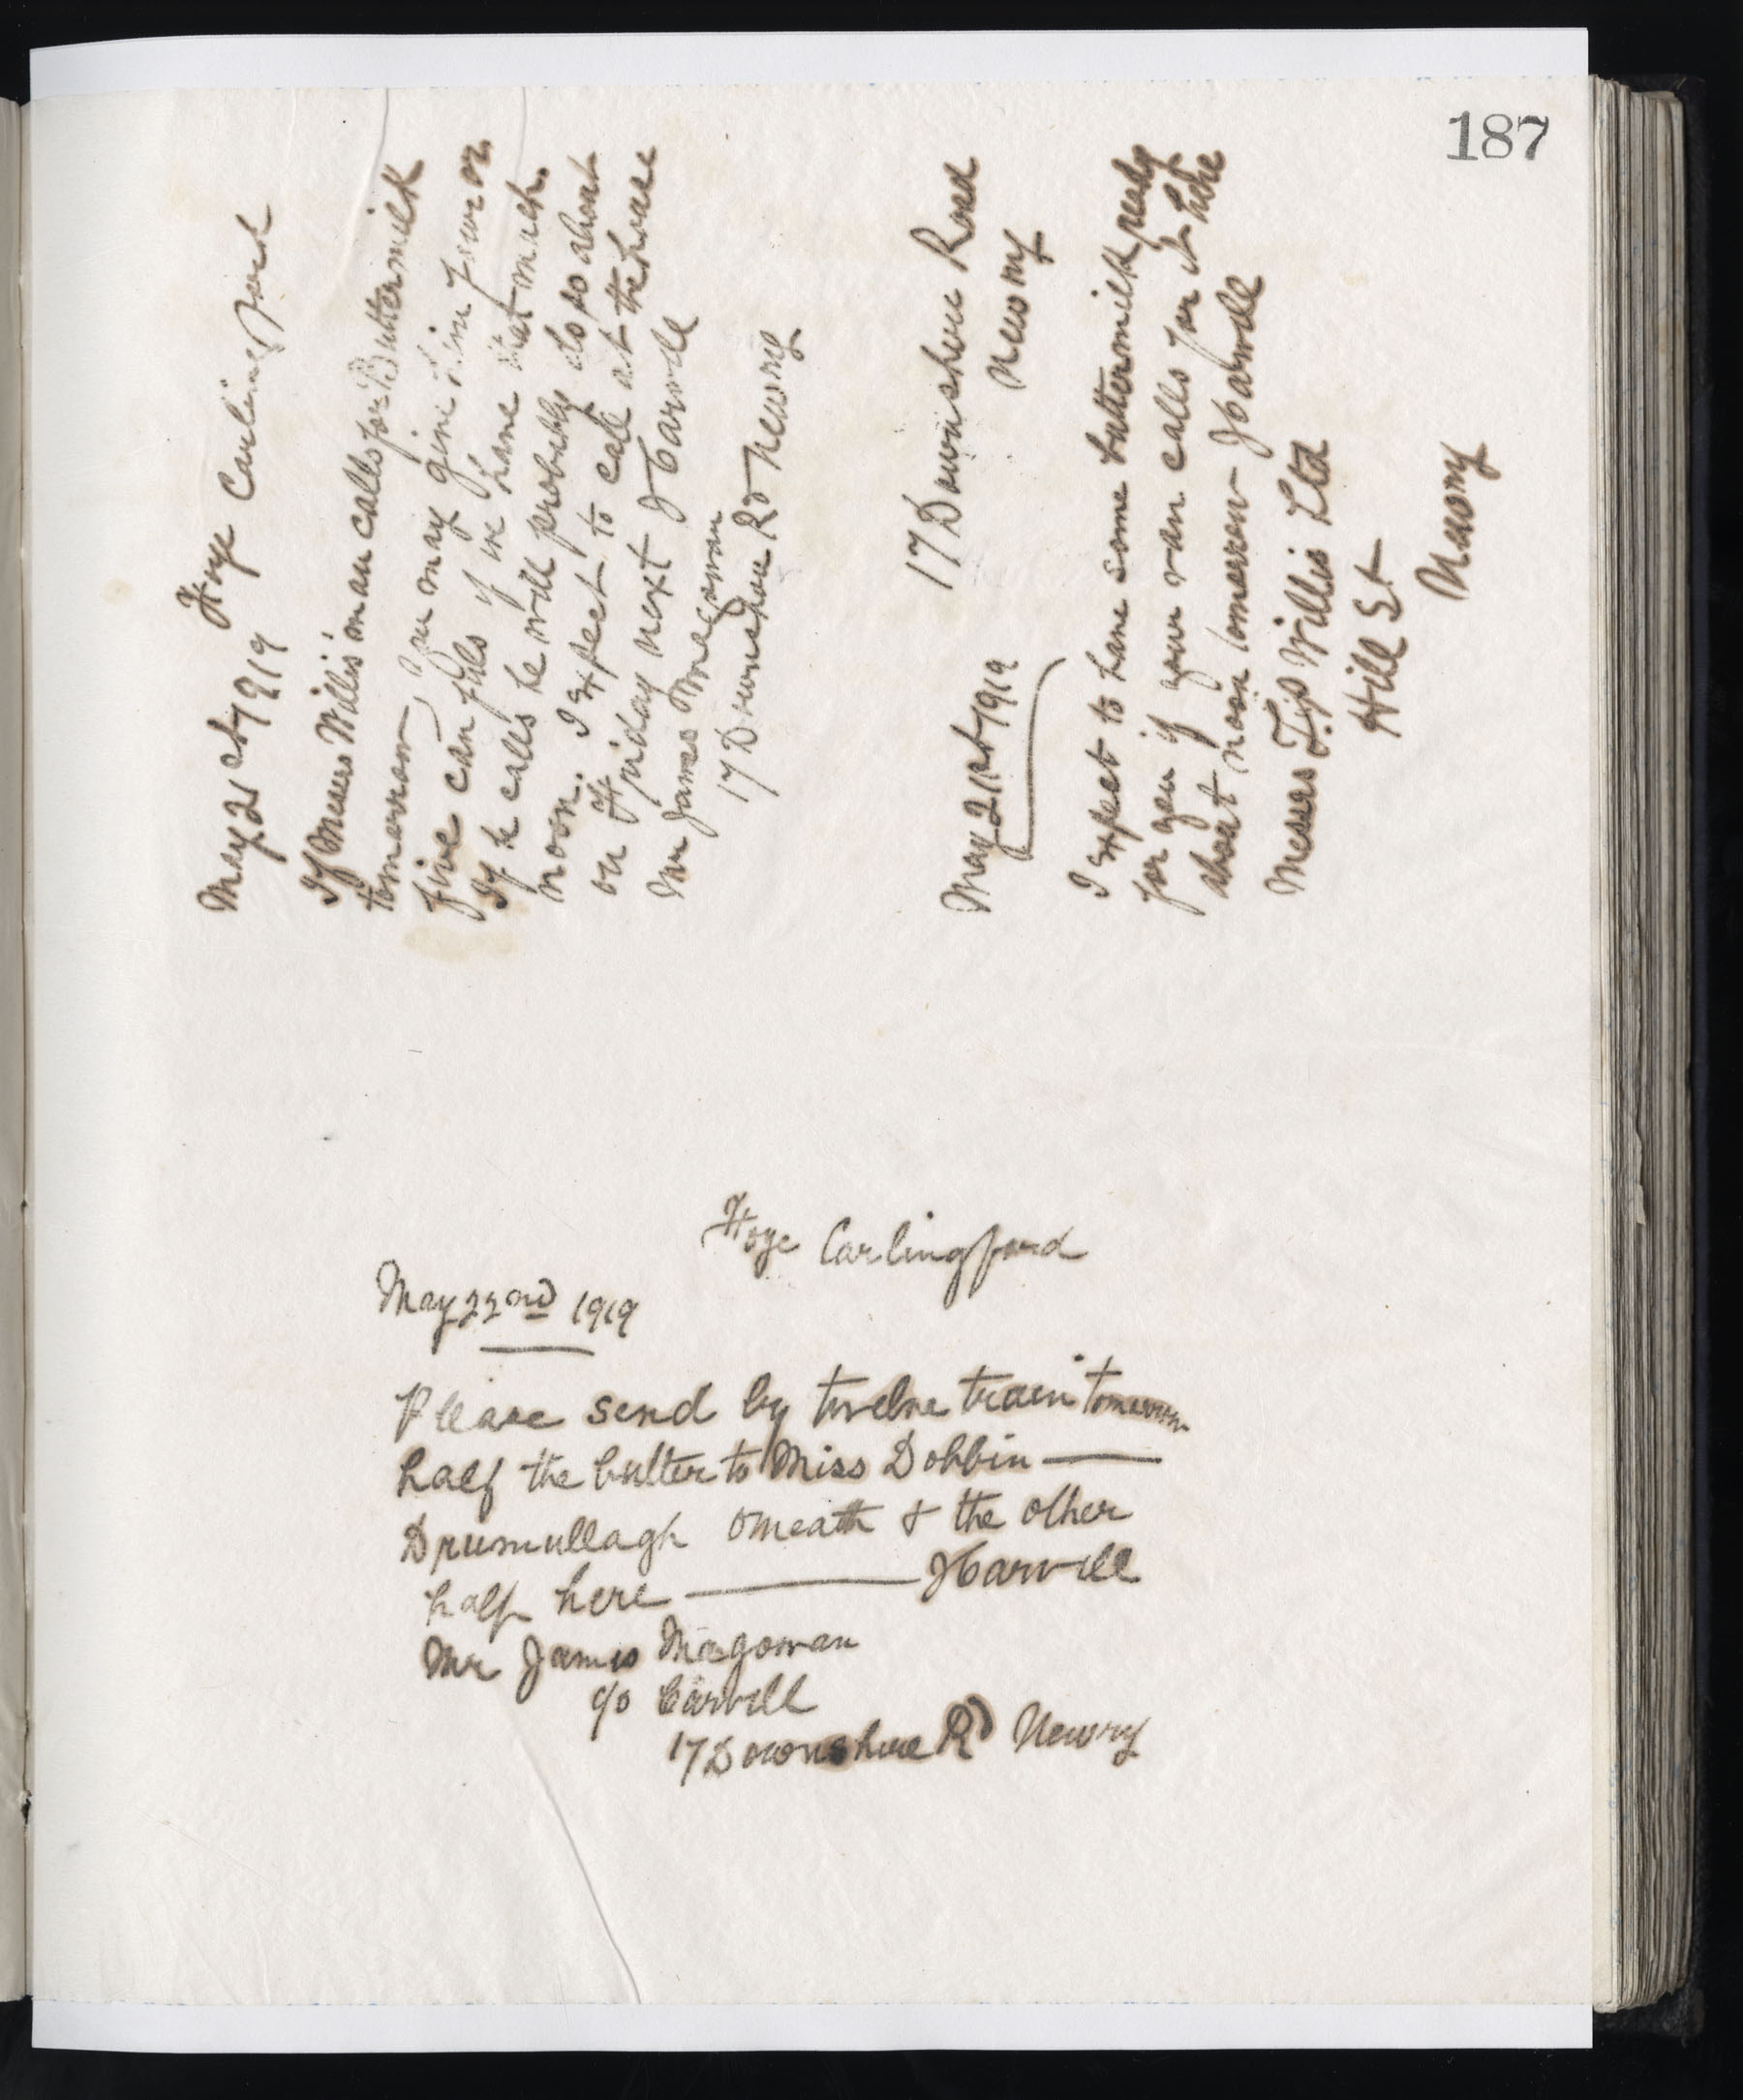 187
Foye Carlingford
May 21st 1919
If Messrs Willis' man calls for Buttermilk
tomorrow you may give him four or
five can fuls if we have that much.
If he calls he will probably do so about
noon. I expect to call at the house
on Friday next JCarvill
Mr James Magowan
17 Downshire Rd Newry
17 Downshire Road
Newry
May 21st 1919
I expect to have some buttermilk ready
for you if your van calls for it here
about noon tomorrow JCarvill
Messrs Willis Ltd
Hill St
Newry
Foye Carlingford
May 22nd 1919
Please send by twelve train tomorrow
half the butter to Miss Dobbin —
Drumullagh Omeath & the other
half here — JCarvill
Mr James Magowan
c/o Carvill
17 Downshire Rd Newry